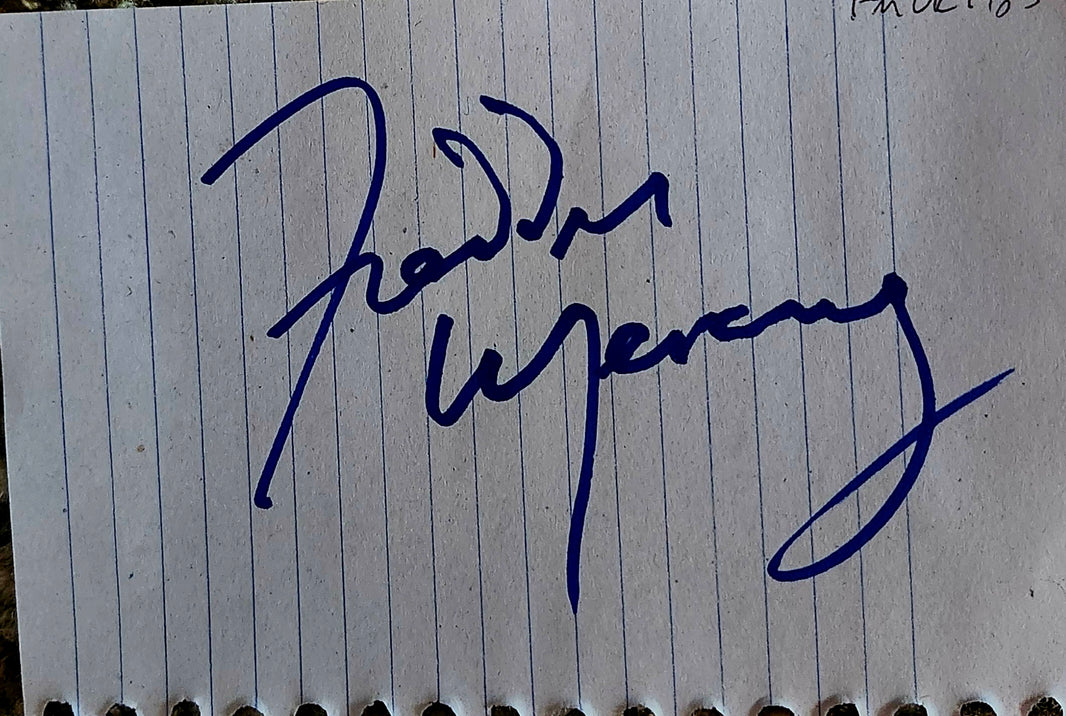 Freddy
Mercury